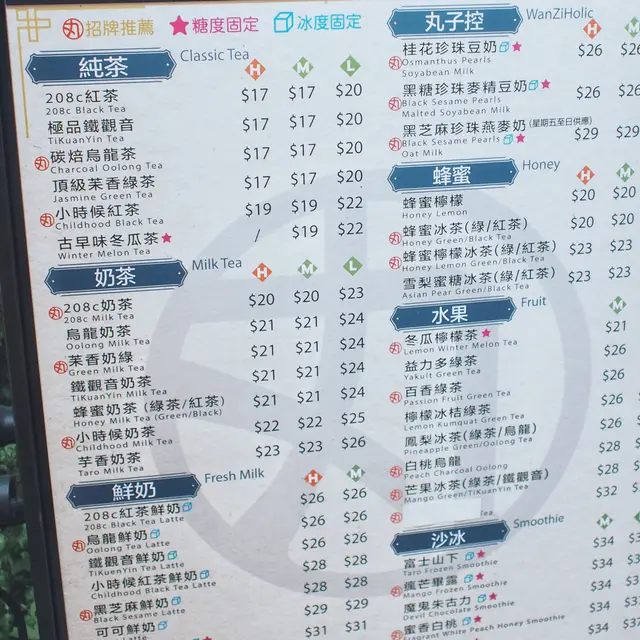 丸招牌推薦 糖度固定 冰度固定
純茶 Classic Tea H M L
208c紅茶 $17 $17 $20
208c Black Tea
極品鐵觀音 $17 $17 $20
TiKuanYin Tea
丸碳焙烏龍茶 $17 $17 $20
Charcoal Oolong Tea
頂級茉香綠茶 $17 $17 $20
Jasmine Green Tea
丸小時候紅茶 $19 $19 $22
Childhood Black Tea
古早味冬瓜茶 / $19 $22
Winter Melon Tea
奶茶 Milk Tea H M L
丸208c奶茶 $20 $20 $23
208c Milk Tea
烏龍奶茶 $21 $21 $24
Oolong Milk Tea
丸茉香奶綠 $21 $21 $24
Green Milk Tea
鐵觀音奶茶 $21 $21 $24
TiKuanYin Milk Tea
蜂蜜奶茶(綠茶/紅茶) $21 $21 $24
Honey Milk Tea (Green/Black)
丸小時候奶茶 $22 $22 $25
Childhood Milk Tea
芋香奶茶 $23 $23 $26
Taro Milk Tea
鮮奶 Fresh Milk H M
208c紅茶鮮奶 $26 $26
208c Black Tea Latte
丸烏龍鮮奶 $26 $26
Oolong Tea Latte
鐵觀音鮮奶 $26 $26
TiKuenYin Tea Latte
小時候紅茶鮮奶 $28 $28
Childhood Black Tea Latte
丸黑芝麻鮮奶 $29 $29
Black Sesame Latte
可可鮮奶 $31 $31
丸子控 WanZiHolic H M
桂花珍珠豆奶 $26
丸Osmanthus Pearls
Soyabean Milk
黑糖珍珠麥精豆奶 $26
丸Black Sesame Pearls
Malted Soyabean Milk
黑芝麻珍珠燕麥奶(星期五至日供應) $29 $29
丸Black Sesame Pearls
Oat Milk
蜂蜜 Honey H M
蜂蜜檸檬 $20 $20
Honey Lemon
丸蜂蜜冰茶(綠/紅茶) $20 $20
Honey Green/Black Tea
丸蜂蜜檸檬冰茶(綠/紅茶) $23 $23
Honey Lemon Green/Black Tea
雪梨蜜糖冰茶(綠/紅茶) $23 $23
Asian Pear Green/Black Tea
水果 Fruit M
丸冬瓜檸檬茶 $21
Lemon Winter Melon Tea
益力多綠茶 $26
Yakult Green Tea
丸百香綠茶 $26
Passion Fruit Green Tea
檸檬冰桔綠茶 $26
Lemon Kumquat Green Tea
鳳梨冰茶(綠茶/烏龍) $26
Pineapple Green/Oolong Tea
丸白桃烏龍 $28
Peach Charcoal Oolong
丸芒果冰茶(綠茶/鐵觀音) $28
Mango Green/TiKuanYin Tea
$32
Tea
沙冰 Smoothie M
富士山下 $34
Taro Frozen Smoothie
丸瘋芒畢露 $34
Mango Frozen Smoothie
魔鬼朱古力 $34
Devil Chocolate Smoothie
蜜香白桃 $34
Fragrant White Peach Honey Smoothie